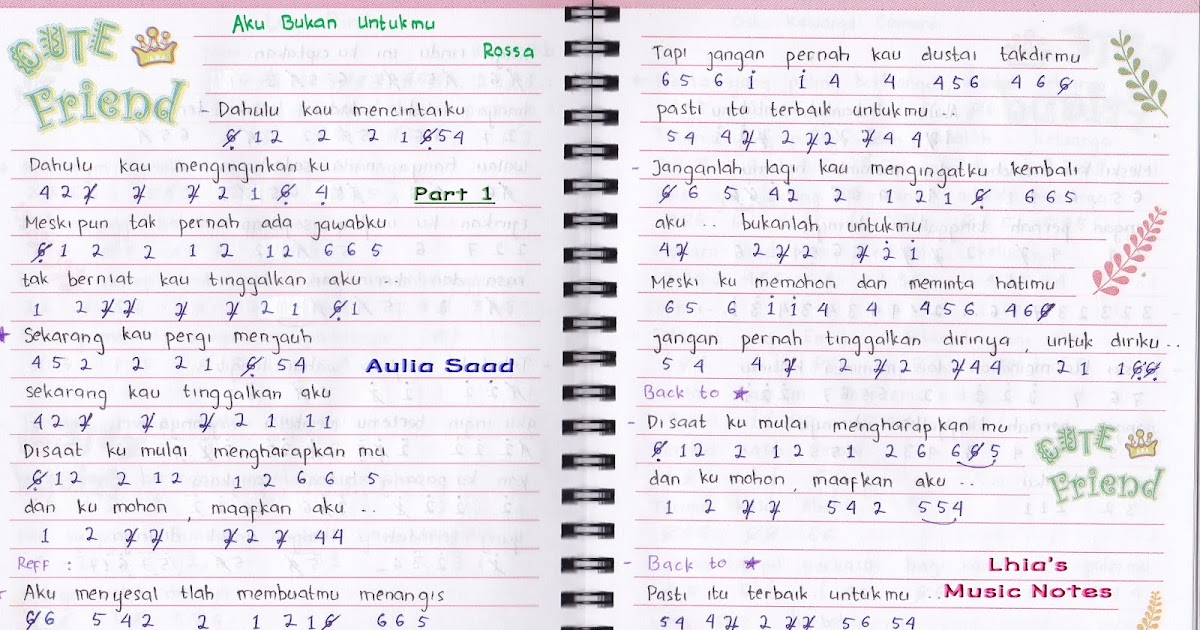 CUTE
Friend
Aku Bukan Untukmu
Rossa
- Dahulu kau mencintaiku
6 1 2 2 2 1 6 5 4
Dahulu kau menginginkan ku
4 2 2 2 2 2 1 6 4
Part 1
Meskipun tak pernah ada jawabku
6 1 2 2 1 2 1 2 6 6 5
tak berniat kau tinggalkan aku ...
1 2 2 2 2 2 2 1 6 1
★ Sekarang kau pergi menjauh
4 5 2 2 2 1 6 5 4
Aulia Saad
sekarang kau tinggalkan aku
4 2 2 2 2 2 1 1 1
Disaat ku mulai mengharapkan mu
6 1 2 2 1 2 1 2 6 6 5
dan ku mohon, maafkan aku ..
1 2 2 2 2 2 2 4 4
Reff :
Aku menyesal tlah membuatmu menangis
6 6 5 4 2 2 1 2 1 6 6 6 5
Tapi jangan pernah kau dustai takdirmu
6 5 6 i i 4 4 4 5 6 4 6 6
pasti itu terbaik untukmu ..
5 4 4 2 2 2 2 2 4 4
- Janganlah lagi kau mengingatku kembali
6 6 5 4 2 2 1 2 1 6 6 6 5
aku .. bukanlah untukmu
4 2 2 2 2 2 2 i
Meski ku memohon dan meminta hatimu
6 5 6 i i 4 4 4 5 6 4 6 6
jangan pernah tinggalkan dirinya, untuk diriku ..
5 4 4 2 2 2 2 2 4 4 2 1 1 6 6
Back to ★
- Disaat ku mulai mengharapkan mu
6 1 2 2 1 2 1 2 6 6 6 5
CUTE
Friend
dan ku mohon, maafkan aku ..
1 2 2 2 5 4 2 5 5 4
- Back to ★
Lhia's
Music Notes
Pasti itu terbaik untukmu ..
5 4 4 2 2 2 2 5 6 5 4